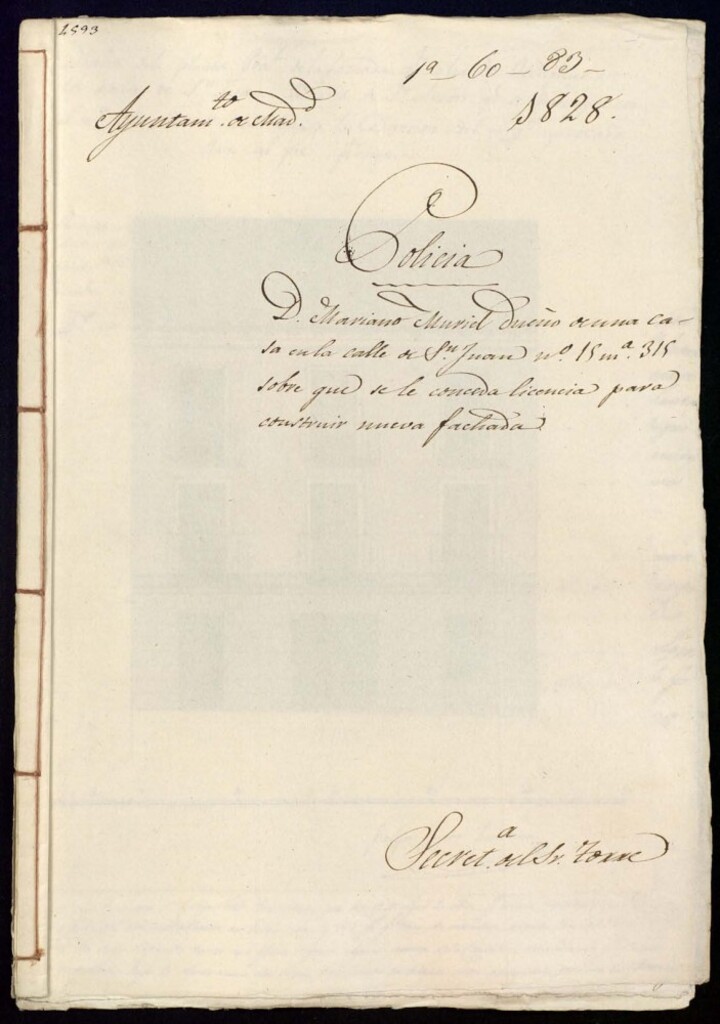 1593
1ª - 60 - 83 -
Ayuntam.to de Mad.d
1828.
Policia
D. Mariano Muriel dueño de una ca-
sa en la calle de S.n Juan nº. 15 m.ª 315
sobre que se le conceda licencia para
construir nueva fachada
Secret.ª del Sr. Torre